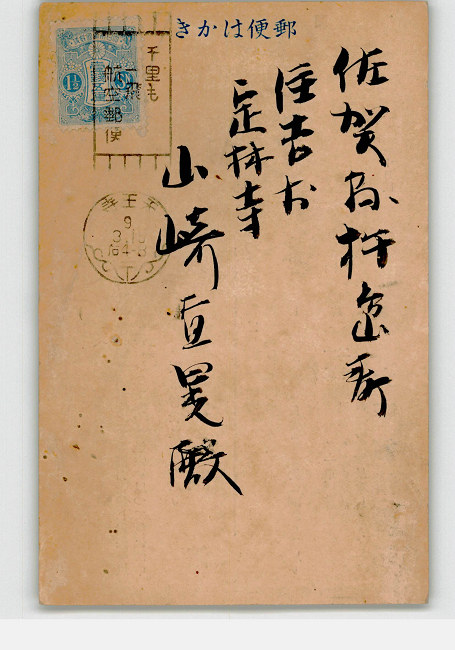 きかは便郵
佐賀縣杵島郡
住吉村
定林寺
山崎亘
殿
千里も
一飛
航空郵便
1½
9
3